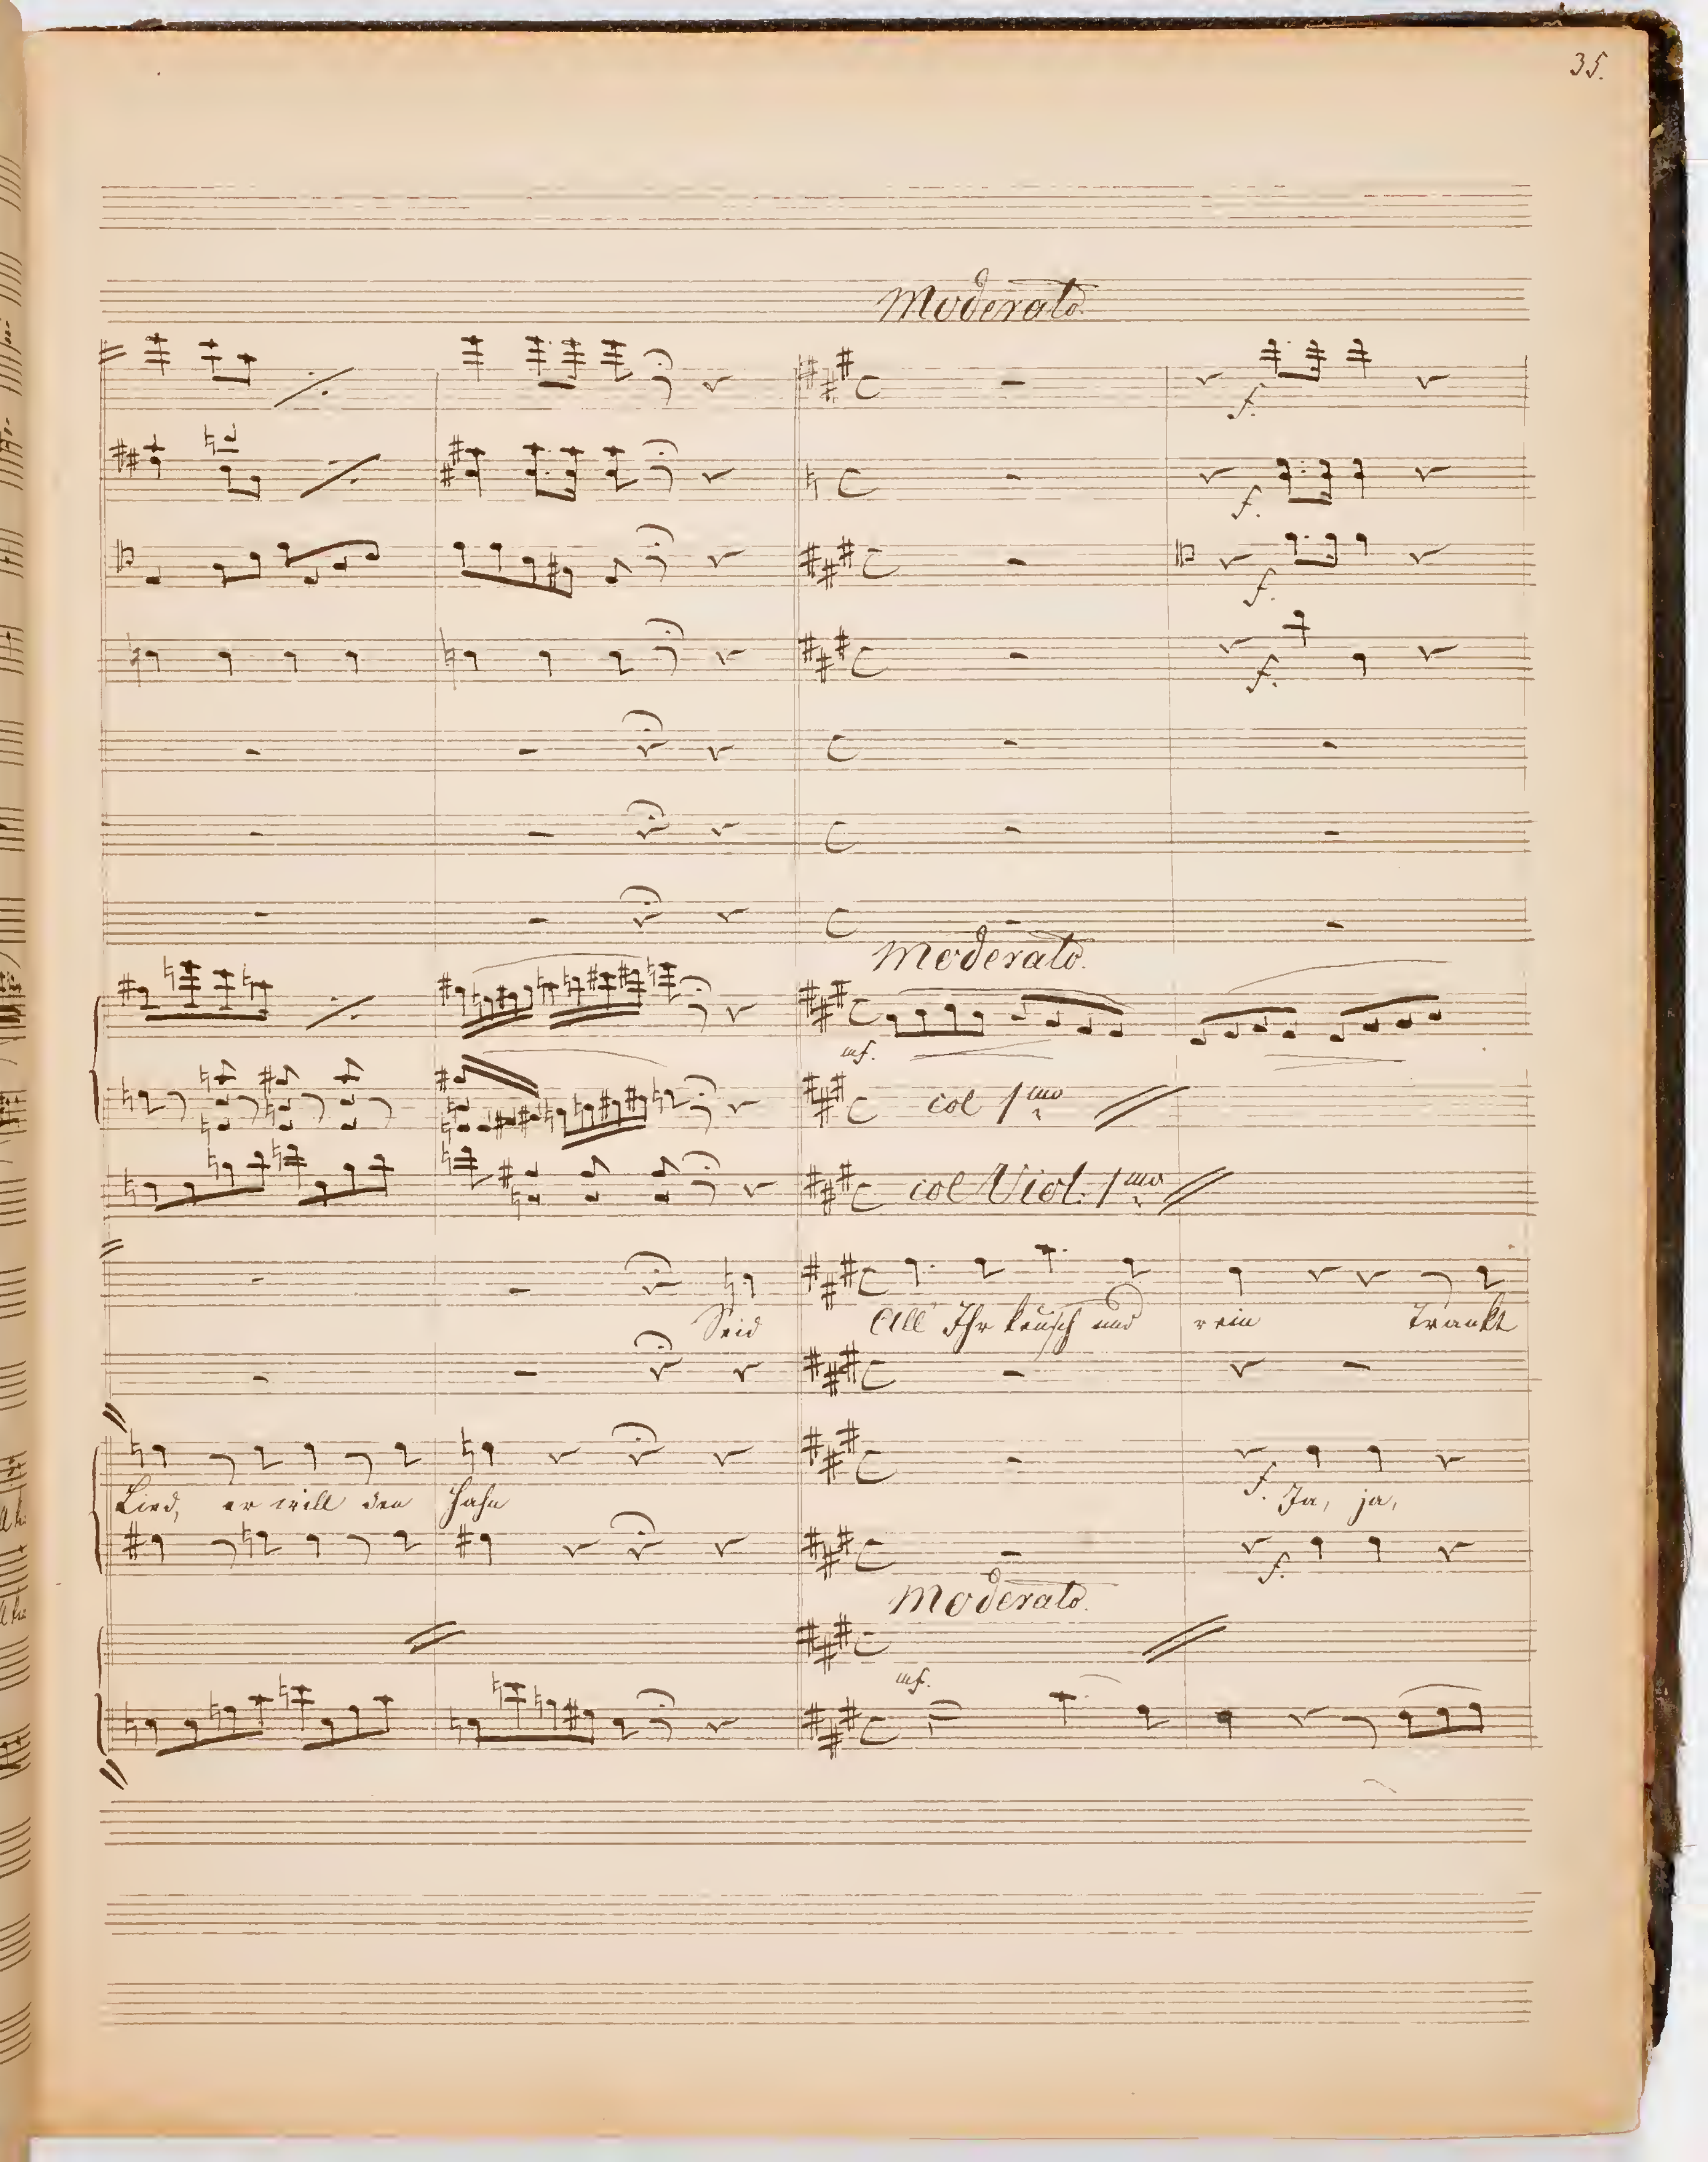 35.
Moderato.
f.
f.
f.
f.
Moderato.
mf.
col 1mo
col Viol. 1mo
Seid All' Ihr keusch und rein Trankt
Lied, er will den Hahn f. Ja, ja,
f.
Moderato.
mf.